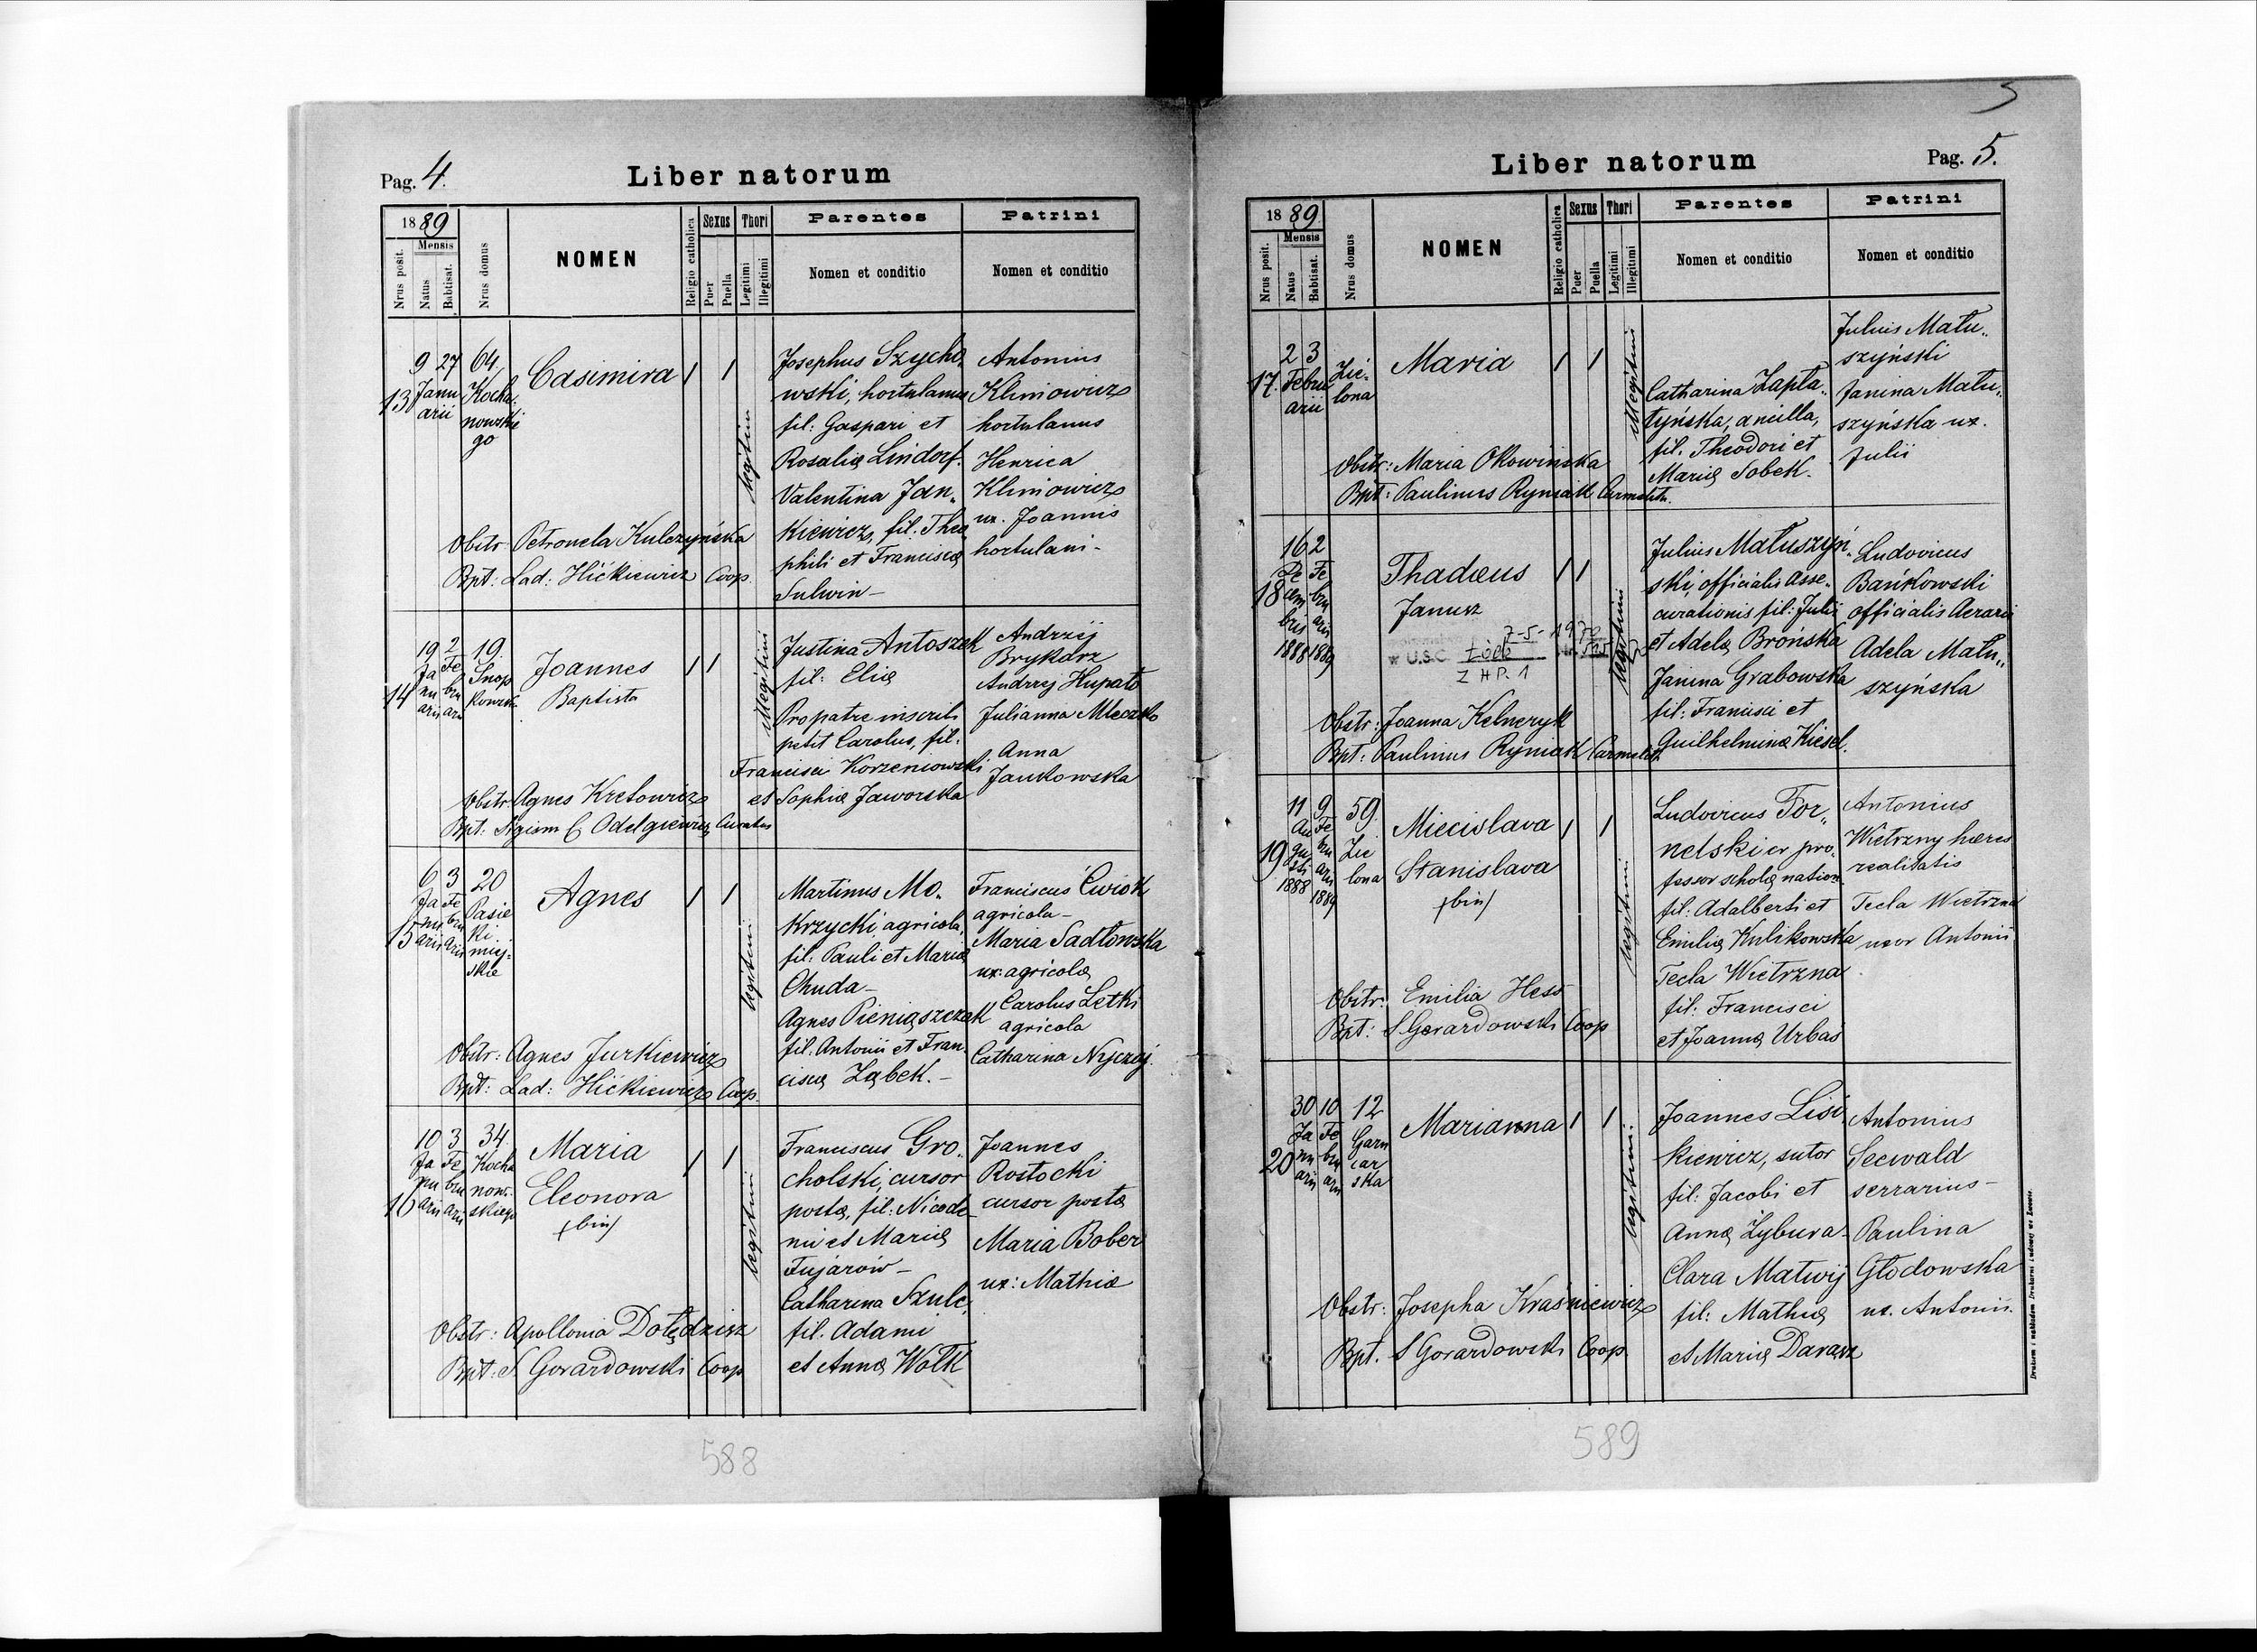 Pag. 4.
Liber natorum
1889
Nrus posit.
Mensis
Natus
Babtisat.
Nrus domus
NOMEN
Religio catholica
Sexus
Puer
Puella
Thori
Legitimi
Illegitimi
Parentes
Nomen et conditio
Patrini
Nomen et conditio
13
9 27
Janu
arii
64
Kocha
nowskie
go
Casimira
legitimi
Josephus Szycho
wski, hortulanus
fil: Gaspari et
Rosaliæ Lindorf.
Valentina Jan„
Kiewicz, fil. Theo
phili et Franciscæ
Sulwin –
Antonius
Klimowicz
hortulanus
Henrica
Klimowicz
ux. Joannis
hortulani -
Obstr: Petronela Kulczyńska
Bpt: Lad: Hićkiewicz Coop
14
19 2
Ja Fe
nu bru
arii arii
19.
Snop
kowska
Joannes
Baptista
illegitimi
Justina Antoszek
fil: Eliæ
Pro patre inscribi
petit Carolus, fil.
Francisci Korzeniowski
et Sophiæ Jaworska
Andrzej
Brykarz
Andrzej Hupało
Julianna Mleczko
Anna
Jankowska
Obstr: Agnes Kretowicz
Bpt: Sigism C Odelgiewicz Curatus
15
6 3
Ja Fe
nu bru
arii arii
20
Pasie
ki
miej-
skie
Agnes
legitimi
Martinus Mo„
Krzycki agricola,
fil: Pauli et Mariæ
Chuda –
Agnes Pieniąszczak
fil. Antonii et Fran
ciscæ Ząbek. –
Franciscus Ćwiok
agricola –
Maria Sadłowska
ux: agricolæ
Carolus Letki
agricola
Catharina Nyczaj.
Obstr: Agnes Jurkiewicz
Bpt: Lad: Hićkiewicz Coop.
16
10 3
Ja Fe
nu bru
arii arii
34.
Kocha
now-
skiego
Maria
Eleonora
(bin)
legitimi
Franciscus Gro„
cholski, cursor
postæ, fil: Nicode
mi et Mariæ
Fujarów –
Catharina Szulc,
fil. Adami
et Annæ Wołk
Joannes
Rostocki
cursor postæ
Maria Bober
ux: Mathiæ
Obstr: Apollonia Dołędzisz
Bpt: S Gorardowski Coop
588
5
Pag. 5.
Liber natorum
1889
Nrus posit.
Mensis
Natus
Babtisat.
Nrus domus
NOMEN
Religio catholica
Sexus
Puer
Puella
Thori
Legitimi
Illegitimi
Parentes
Nomen et conditio
Patrini
Nomen et conditio
17.
2 3
Febru
arii
Zie-
lona
Maria
illegitimi
Catharina Zapła„
tyńska, ancilla,
fil. Theodori et
Mariæ Sobek.
Julius Matu„
szyński
Janina Matu„
szyńska ux.
Julii
Obstr: Maria Okowińska
Bpt: Paulinus Ryniak Carmelit.
18
16 2
De Fe
cem bru
bris arii
1888 1889
Thadæus
Janusz
7-5-1970
w U.S.C Łódź
Z HP. 1
legitimi
Julius Matuszyń„
ski, officialis Asse„
curationis fil: Julii
et Adelæ Brońska
Janina Grabowska
fil: Francisci et
Guilhelminæ Kiesel.
Ludovicus
Bańkowski
officialis Aerarii
Adela Matu„
szyńska
Obstr: Joanna Kelneryk
Bpt: Paulinus Ryniak Carmelit
19
11 9
Au Fe
gu bru
sti arii
1888 1889
59.
Zie
lona
Miecislava
Stanislava
(bin)
legitimi
Ludovicus For„
nelski er pro„
fessor scholæ nation.
fil: Adalberti et
Emiliæ Kulikowska
Tecla Wietrzna
fil: Francisci
et Joannæ Urbas
Antonius
Wietrzny hæres
realitatis
Tecla Wietrzna
uxor Antonii
Obstr: Emilia Hess
Bpt: S Gorardowski Coop
20
30 10
Ja Fe
nu bru
arii arii
12
Garn
car
ska
Marianna
legitimi
Joannes Lisi„
kiewicz, sutor
fil: Jacobi et
Annæ Żybura –
Clara Matwij
fil: Mathiæ
et Mariæ Darasz
Antonius
Seewald
serrarius –
Paulina
Głodowska
ux. Antonii.
Obstr: Josepha Kraśniewicz
Bpt. S Gorardowski Coop.
Drukiem i nakładem Drukarni Ludowej we Lwowie.
589